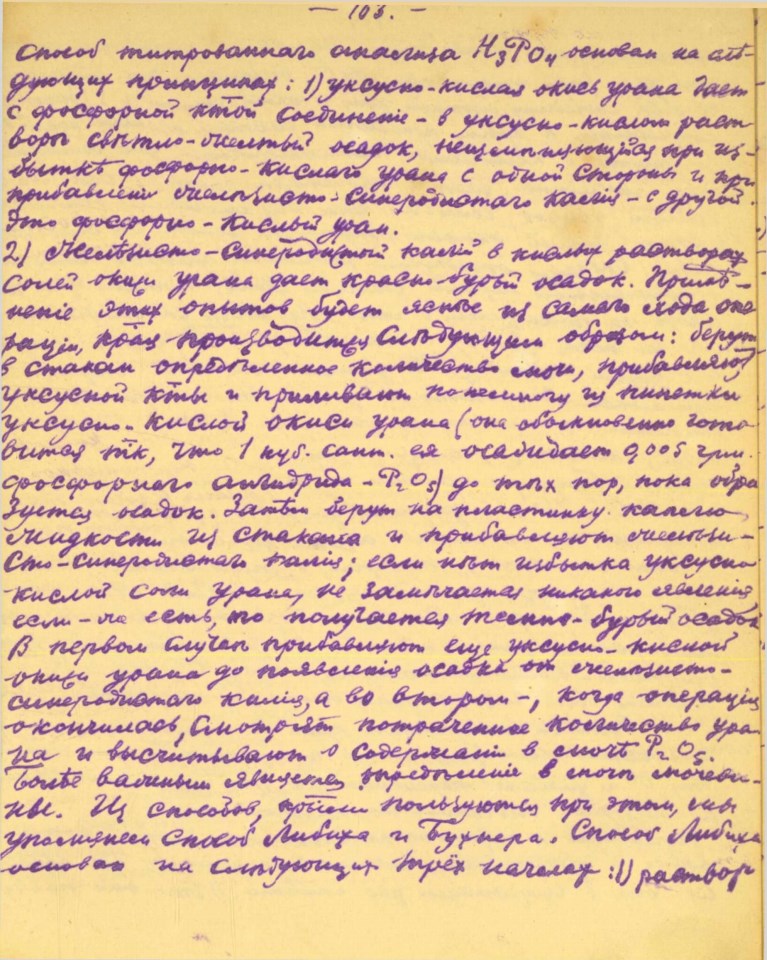 — 103. —
Способ титрованнаго анализа H₃PO₄ основан на слѣ-
дующих принципах: 1) уксусно-кислая окись урана дает
с фосфорной к‑той соединеніе – в уксусно-кислом раст
ворѣ свѣтло-желтый осадок, неизмѣняющійся при из-
быткѣ фосфорно-кислаго урана с одной стороны и при
прибавленіи желѣзисто-синеродистаго калія – с другой.
Это фосфорно-кислый уран.
2) Желѣзисто-синеродистой калій в кислых растворах
солей окиси урана дает красно-бурый осадок. Примѣ-
неніе этих опытов будет яснѣе из самаго хода опе
раціи, к‑рая производится слѣдующим образом: берут
в стакан опредѣленное количество мочи, прибавляют
уксусной к‑ты и приливают понемногу из пипетки
уксусно-кислой окиси урана (она обыкновенно гото
вится так, что 1 куб. сант. ея осаждает 0,005 грм.
фосфорнаго ангидрида – P₂O₅) до тѣх пор, пока обра
зуется осадок. Затѣм берут на пластинку каплю
жидкости из стакана и прибавляют желѣзи-
сто-синеродистаго калія; если нѣт избытка уксусно
кислой соли урана, не замѣчается никакого явленія
если-же есть, то получается темно-бурый осадок
В первом случаѣ прибавляют еще уксусно-кислой
окиси урана до появленія осадка от желѣзисто-
синеродистаго калія, а во втором –, когда операція
окончилась, смотрят потраченное количество ура
на и высчитывают о содержаніи в мочѣ P₂O₅.
Болѣе важным является опредѣленіе в мочѣ мочеви-
ны. Из способов, к‑рыми пользуются при этом, мы
упомянем способ Либиха и Бухнера. Способ Либиха
основан на слѣдующих трёх началах: 1) раствор